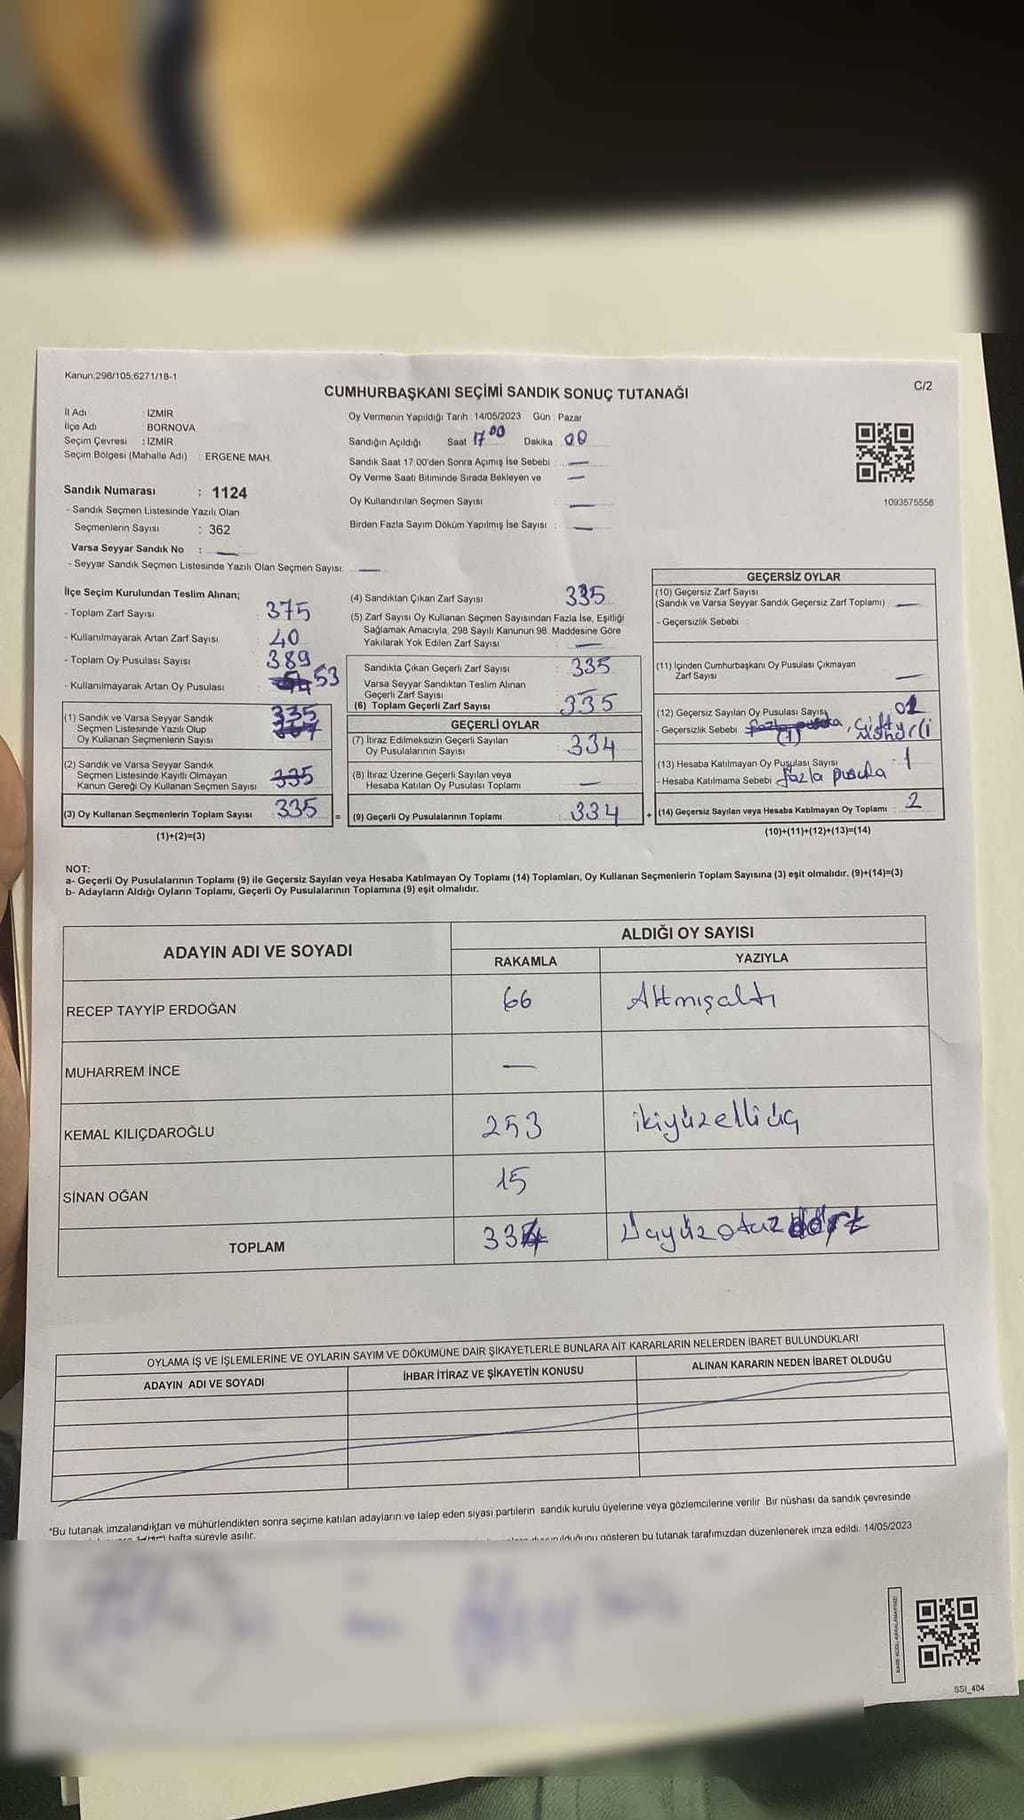 Kanun;298/105;6271/18-1
C/2
CUMHURBAŞKANI SEÇİMİ SANDIK SONUÇ TUTANAĞI
İl Adı : İZMİR
İlçe Adı : BORNOVA
Seçim Çevresi : İZMİR
Seçim Bölgesi (Mahalle Adı) : ERGENE MAH.
Oy Vermenin Yapıldığı Tarih : 14/05/2023 Gün : Pazar
Sandığın Açıldığı Saat 17 00 Dakika : 00
Sandık Saat 17:00'den Sonra Açımış İse Sebebi : —
Oy Verme Saati Bitiminde Sırada Bekleyen ve —
Oy Kullandırılan Seçmen Sayısı —
Birden Fazla Sayım Döküm Yapılmış İse Sayısı : —
1093575558
Sandık Numarası : 1124
- Sandık Seçmen Listesinde Yazılı Olan
Seçmenlerin Sayısı : 362
Varsa Seyyar Sandık No : —
- Seyyar Sandık Seçmen Listesinde Yazılı Olan Seçmen Sayısı: —
İlçe Seçim Kurulundan Teslim Alınan;
- Toplam Zarf Sayısı : 375
- Kullanılmayarak Artan Zarf Sayısı : 40
- Toplam Oy Pusulası Sayısı : 389
- Kullanılmayarak Artan Oy Pusulası : 53
(1) Sandık ve Varsa Seyyar Sandık 335
Seçmen Listesinde Yazılı Olup
Oy Kullanan Seçmenlerin Sayısı
(2) Sandık ve Varsa Seyyar Sandık
Seçmen Listesinde Kayıtlı Olmayan
Kanun Gereği Oy Kullanan Seçmen Sayısı 335
(3) Oy Kullanan Seçmenlerin Toplam Sayısı 335 =
(1)+(2)=(3)
(4) Sandıktan Çıkan Zarf Sayısı : 335
(5) Zarf Sayısı Oy Kullanan Seçmen Sayısından Fazla İse, Eşitliği
Sağlamak Amacıyla, 298 Sayılı Kanunun 98. Maddesine Göre
Yakılarak Yok Edilen Zarf Sayısı : —
Sandıkta Çıkan Geçerli Zarf Sayısı : 335
Varsa Seyyar Sandıktan Teslim Alınan
Geçerli Zarf Sayısı
(6) Toplam Geçerli Zarf Sayısı : 335
GEÇERLİ OYLAR
(7) İtiraz Edilmeksizin Geçerli Sayılan
Oy Pusulalarının Sayısı : 334
(8) İtiraz Üzerine Geçerli Sayılan veya
Hesaba Katılan Oy Pusulası Toplamı : —
(9) Geçerli Oy Pusulalarının Toplamı : 334 +
GEÇERSİZ OYLAR
(10) Geçersiz Zarf Sayısı
(Sandık ve Varsa Seyyar Sandık Geçersiz Zarf Toplamı) : —
- Geçersizlik Sebebi :
(11) İçinden Cumhurbaşkanı Oy Pusulası Çıkmayan
Zarf Sayısı : —
(12) Geçersiz Sayılan Oy Pusulası Sayısı
- Geçersizlik Sebebi : fazla pusula (1), Çift Mühürlü
(13) Hesaba Katılmayan Oy Pusulası Sayısı : 1
- Hesaba Katılmama Sebebi : fazla pusula
(14) Geçersiz Sayılan veya Hesaba Katılmayan Oy Toplamı : 2
(10)+(11)+(12)+(13)=(14)
NOT:
a- Geçerli Oy Pusulalarının Toplamı (9) ile Geçersiz Sayılan veya Hesaba Katılmayan Oy Toplamı (14) Toplamları, Oy Kullanan Seçmenlerin Toplam Sayısına (3) eşit olmalıdır. (9)+(14)=(3)
b- Adayların Aldığı Oyların Toplamı, Geçerli Oy Pusulalarının Toplamına (9) eşit olmalıdır.
ADAYIN ADI VE SOYADI
ALDIĞI OY SAYISI
RAKAMLA YAZIYLA
RECEP TAYYİP ERDOĞAN 66 Altmışaltı
MUHARREM İNCE —
KEMAL KILIÇDAROĞLU 253 ikiyüzelliüç
SİNAN OĞAN 15
TOPLAM 334 Üçyüzotuzdört
OYLAMA İŞ VE İŞLEMLERİNE VE OYLARIN SAYIM VE DÖKÜMÜNE DAİR ŞİKAYETLERLE BUNLARA AİT KARARLARIN NELERDEN İBARET BULUNDUKLARI
ADAYIN ADI VE SOYADI İHBAR İTİRAZ VE ŞİKAYETİN KONUSU ALINAN KARARIN NEDEN İBARET OLDUĞU
*Bu tutanak imzalandıktan ve mühürlendikten sonra seçime katılan adayların ve talep eden siyasi partilerin sandık kurulu üyelerine veya gözlemcilerine verilir. Bir nüshası da sandık çevresinde
hafta süreyle asılır.
gösteren bu tutanak tarafımızdan düzenlenerek imza edildi. 14/05/2023
SSI_404